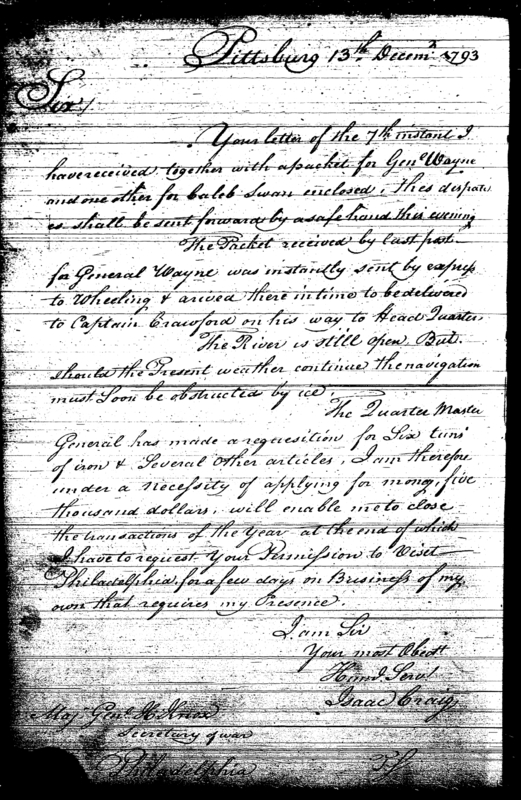 Pittsburg 13th. Decemr. 1793
Sir/
Your letter of the 7th instant I
have received together with a packet for Genl. Wayne
and one other for Caleb Swan enclosed, thes despatch
es shall be sent forward by a safe hand this evening
The Packet received by last post
for General Wayne was instantly sent by express
to Wheeling & arived there in time to be delivered
to Captain Crawford on his way to Head Quarters
The River is still open, But
should the Present weather continue the navigation
must Soon be obstructed by ice.
The Quarter Master
General has made a requesition for Six tuns
of iron & Several Other articles, I am therefore
under a necessity of applying for money, five
thousand dollars, will enable me to close
the transactions of the Year, at the end of which
I have to request Your Permission to Visit
Philadelphia, for a few days on Business of my
own that requires my Presence.
I am Sir
Your most Obedt
Humle. Servt
Isaac Craig
Maj. Genl. H. Knox
Secretary of war
Philadelphia